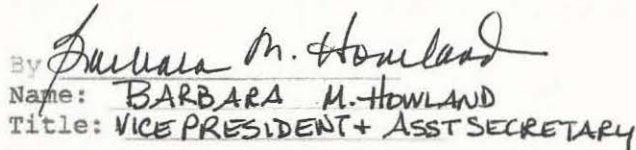 By Barbara M. Howland
Name: BARBARA M. HOWLAND
Title: VICE PRESIDENT + ASST SECRETARY